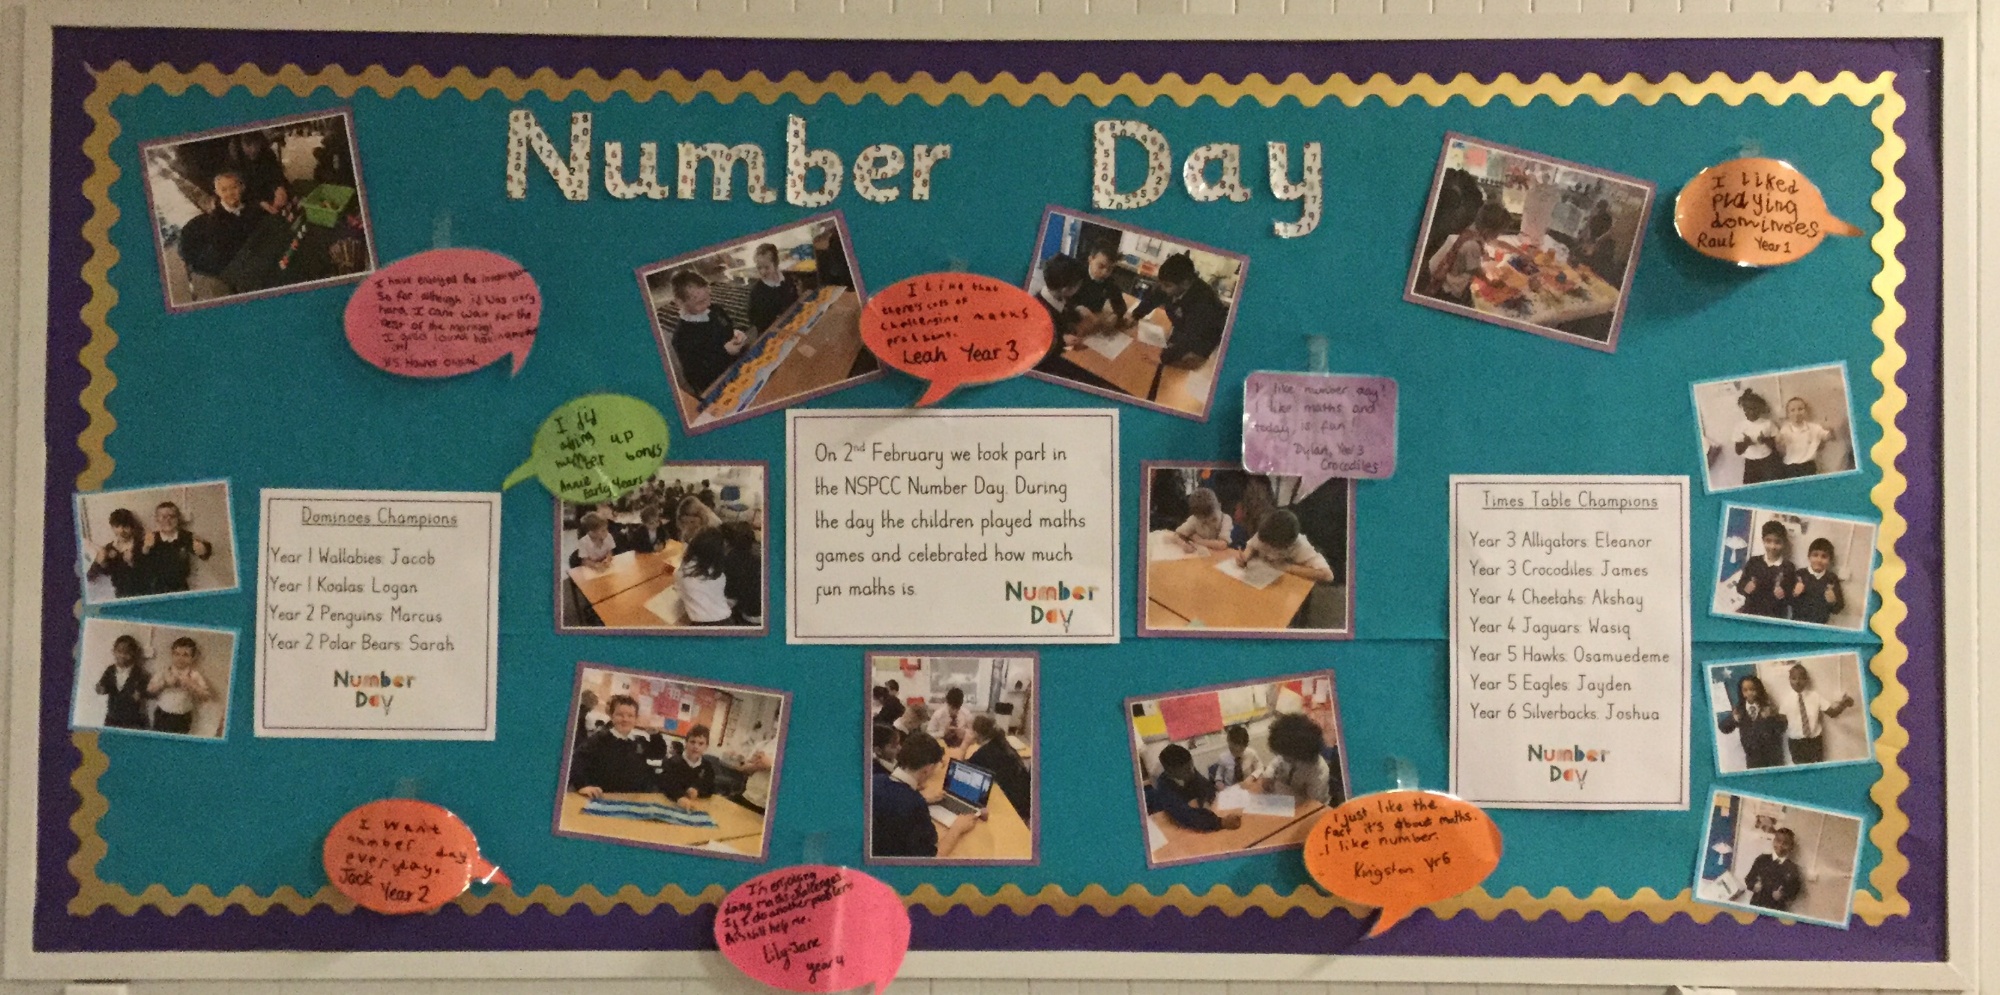 Number Day
I liked
playing
dominoes
Raul Year 1
I have enjoyed the
So far although it was very
hard. I cant wait for the
rest of the morning
I like that
there's lots of
challenging maths
problems.
Leah Year 3
I like number day!
I like maths and
today is fun!
Dylan, Year 3
Crocodiles
up
number bonds
Annie
Early Years
On 2nd February we took part in
the NSPCC Number Day. During
the day the children played maths
games and celebrated how much
fun maths is.
Number
Day
Dominoes Champions
Year 1 Wallabies: Jacob
Year 1 Koalas: Logan
Year 2 Penguins: Marcus
Year 2 Polar Bears: Sarah
Number
Day
Times Table Champions
Year 3 Alligators: Eleanor
Year 3 Crocodiles: James
Year 4 Cheetahs: Akshay
Year 4 Jaguars: Wasiq
Year 5 Hawks: Osamuedeme
Year 5 Eagles: Jayden
Year 6 Silverbacks: Joshua
Number
Day
I want
number day
everyday.
Jack Year 2
I'm enjoying
doing maths challenges
If I do another problem
this will help me.
Lily-Jane
year 4
I just like the
fact it's about maths.
I like number.
Kingston Yr6